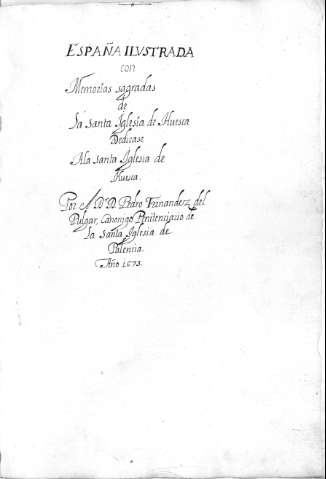 ESPAÑA ILVSTRADA
con
Memorias sagradas
de
la santa Iglesia de Huesca
Dedicase
A la santa Iglesia de
Huesca.
Por el D. D. Pedro Fernandez del
Pulgar, Canonigo Penitenciario de
la santa Iglesia de
Palencia.
Año 1673.